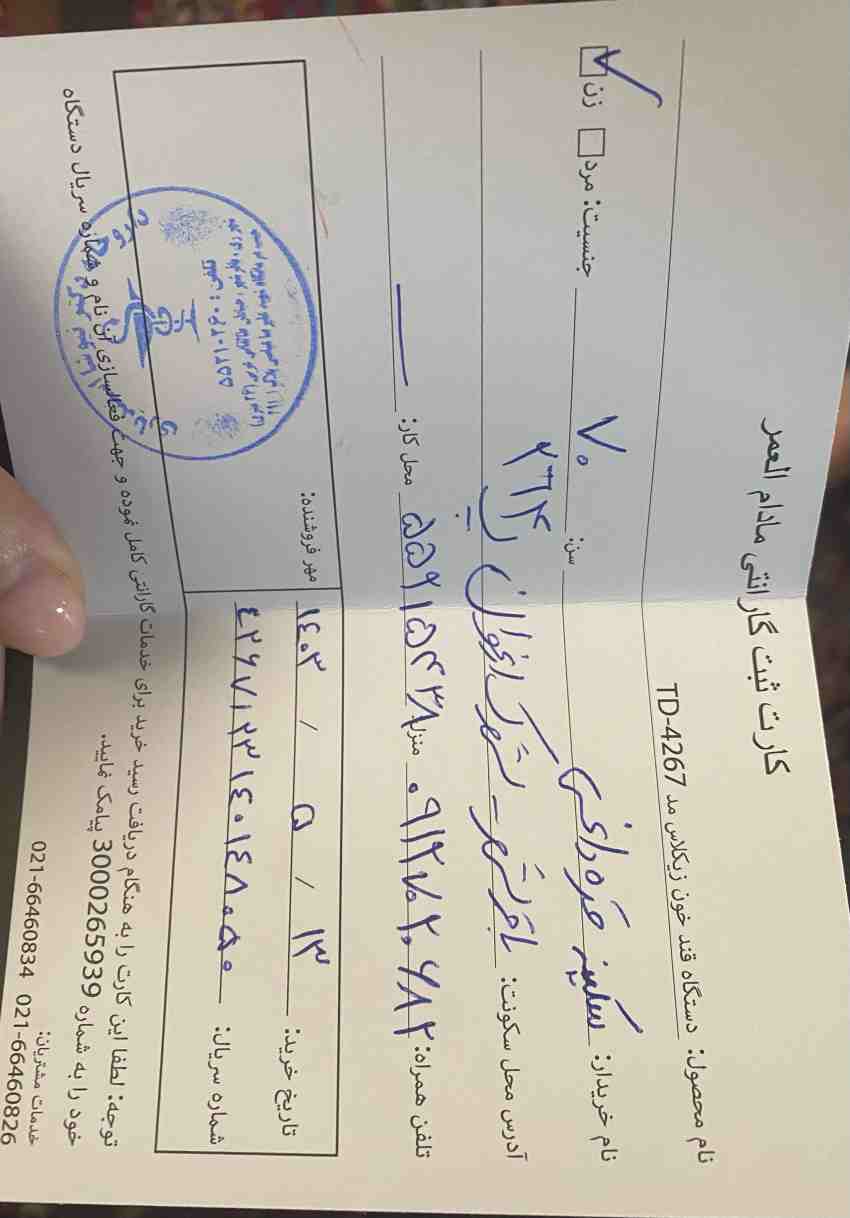 کارت ثبت گارانتی مادام العمر
نام محصول: دستگاه قند خون زیکلاس مد TD-4267
نام خریدار: سکینه قره داغی سن: ۷۰ جنسیت: مرد زن
آدرس محل سکونت: باقرشهر - شهرک
۲۶۱۴
تلفن همراه: ۰۹۱۲۷۰۲۰۶۸۲ منزل ۵۵۹۱۵۴۳۸ محل کار: —
تاریخ خرید: ۱۳ / ۵ / ۱۴۰۳ مهر فروشنده:
شماره سریال: ۴۲۶۷۱۲۳۱۴۰۱۴۸۰۵۰
توجه: لطفا این کارت را به هنگام دریافت رسید خرید برای خدمات گارانتی کامل نموده و جهت فعالسازی آن نام و شماره سریال دستگاه
خود را به شماره 3000265939 پیامک نمایید.
خدمات مشتریان:
021-66460834 021-66460826